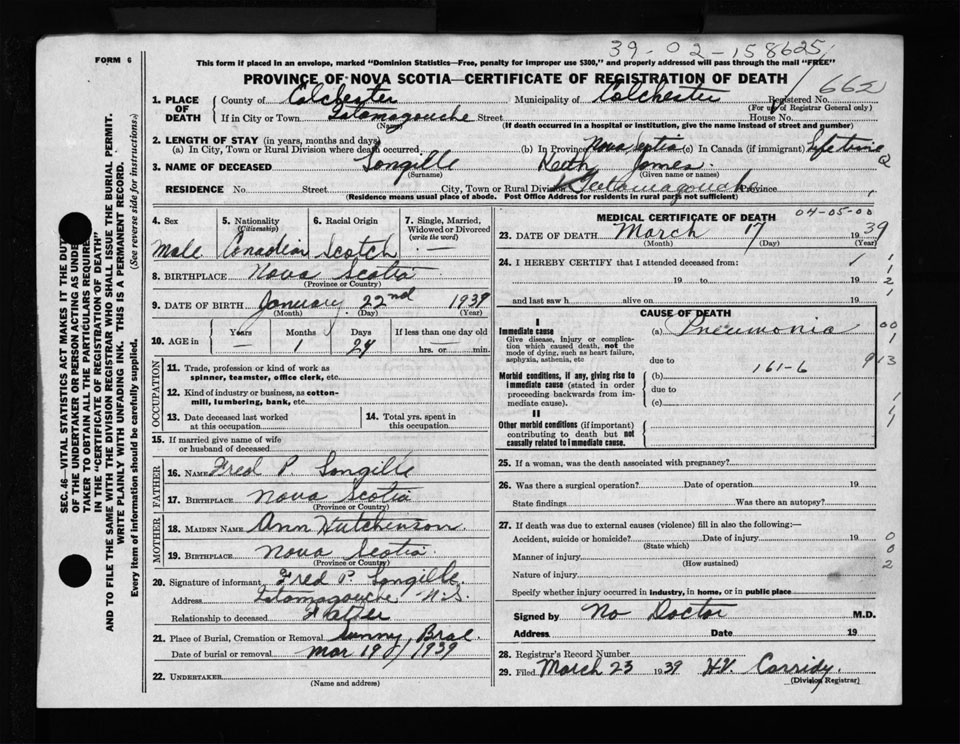 39-02-158625
FORM 6
This form if placed in an envelope, marked "Dominion Statistics—Free, penalty for improper use $300," and properly addressed will pass through the mail "FREE"
PROVINCE OF NOVA SCOTIA—CERTIFICATE OF REGISTRATION OF DEATH
662
1. PLACE OF DEATH
County of Colchester Municipality of Colchester Registered No.
(For use of Registrar General only)
If in City or Town Tatamagouche Street House No.
(Name) (If death occurred in a hospital or institution, give the name instead of street and number)
2. LENGTH OF STAY (in years, months and days)
(a) In City, Town or Rural Division where death occurred (b) In Province Nova Scotia (c) In Canada (if immigrant) life time
3. NAME OF DECEASED Longille Keith James.
(Surname) (Given name or names)
RESIDENCE No. Street City, Town or Rural Division Tatamagouche Province
(Residence means usual place of abode. Post Office Address for residents in rural parts not sufficient)
4. Sex 5. Nationality (Citizenship) 6. Racial Origin 7. Single, Married, Widowed or Divorced (write the word)
Male Canadian Scotch —
8. BIRTHPLACE Nova Scotia
(Province or Country)
9. DATE OF BIRTH January 22nd 1939
(Month) (Day) (Year)
10. AGE in Years Months Days If less than one day old
— 1 24 hrs. or min.
OCCUPATION
11. Trade, profession or kind of work as spinner, teamster, office clerk, etc.
12. Kind of industry or business, as cotton-mill, lumbering, bank, etc.
13. Date deceased last worked at this occupation
14. Total yrs. spent in this occupation
15. If married give name of wife or husband of deceased
FATHER
16. NAME Fred P Longille
17. BIRTHPLACE Nova Scotia
(Province or Country)
MOTHER
18. MAIDEN NAME Ann Hutchenson.
19. BIRTHPLACE Nova Scotia.
(Province or Country)
20. Signature of informant Fred P. Longille.
Address Tatamagouche N.S.
Relationship to deceased Father
21. Place of Burial, Cremation or Removal Sunny Brae.
Date of burial or removal Mar 19 / 1939
22. UNDERTAKER
(Name and address)
MEDICAL CERTIFICATE OF DEATH
04-05-00
23. DATE OF DEATH March 17 1939
(Month) (Day) (Year)
24. I HEREBY CERTIFY that I attended deceased from:
19 to 19
and last saw h alive on 19
CAUSE OF DEATH
I
Immediate cause (a) Pneumonia
Give disease, injury or complication which caused death, not the mode of dying, such as heart failure, asphyxia, asthenia, etc
due to
Morbid conditions, if any, giving rise to immediate cause (stated in order proceeding backwards from immediate cause).
(b) 161-6
due to
(c)
II
Other morbid conditions (if important) contributing to death but not causally related to immediate cause.
25. If a woman, was the death associated with pregnancy?
26. Was there a surgical operation? Date of operation 19
State findings Was there an autopsy?
27. If death was due to external causes (violence) fill in also the following:—
Accident, suicide or homicide? Date of injury 19
(State which)
Manner of injury
(How sustained)
Nature of injury
Specify whether injury occurred in industry, in home, or in public place
Signed by No Doctor M.D.
Address Date 19
28. Registrar's Record Number
29. Filed March 23 1939 H.V. Cassidy.
(Division Registrar)
SEC. 46—VITAL STATISTICS ACT MAKES IT THE DUTY
OF THE UNDERTAKER OR PERSON ACTING AS UNDER
TAKER TO OBTAIN ALL THE PARTICULARS REQUIRED
IN THE "CERTIFICATE OF REGISTRATION OF DEATH"
AND TO FILE THE SAME WITH THE DIVISION REGISTRAR WHO SHALL ISSUE THE BURIAL PERMIT.
WRITE PLAINLY WITH UNFADING INK. THIS IS A PERMANENT RECORD.
Every item of information should be carefully supplied. (See reverse side for instructions.)